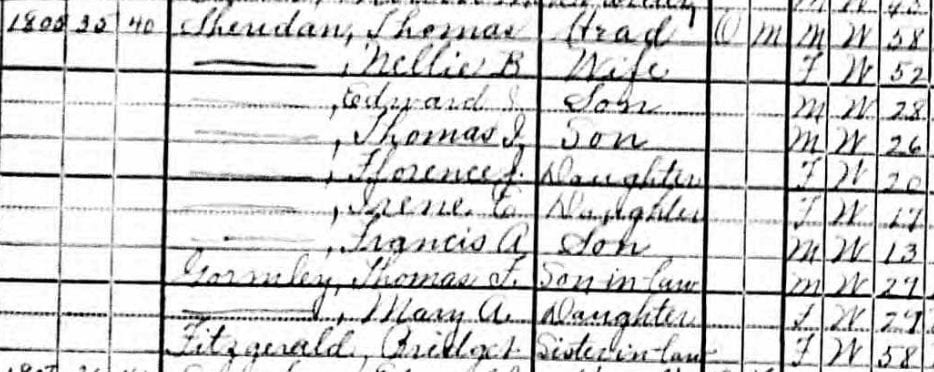 M W 40
1805 35 40 Sheridan, Thomas Head O M M W 58
—, Nellie B Wife F W 52
—, Edward J Son M W 28
—, Thomas J. Son M W 26
—, Florence J. Daughter F W 20
—, Irene E Daughter F W 17
—, Francis A Son M W 13
Gormley, Thomas F. Son in law M W 29
—, Mary A. Daughter F W 29
Fitzgerald, Bridget Sister-in-law F W 58